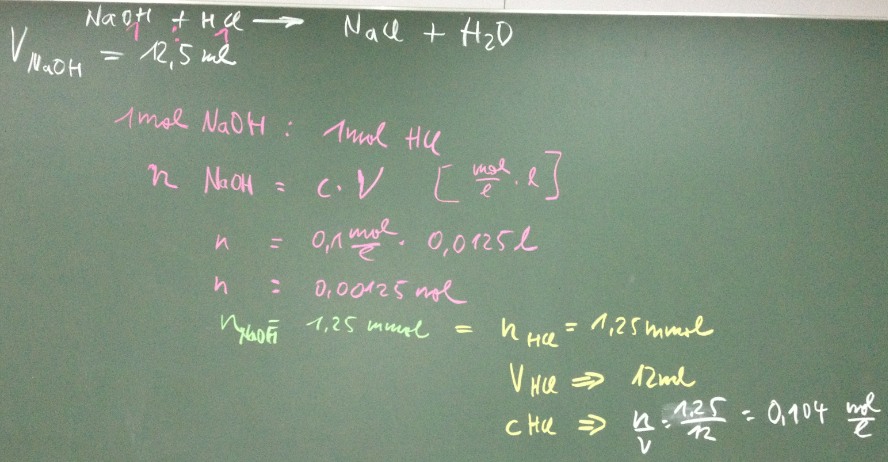 NaOH + HCl → NaCl + H₂O
1 : 1
V NaOH = 12,5 ml
1mol NaOH : 1mol HCl
n NaOH = c · V [mol/l · l]
n = 0,1 mol/l · 0,0125 l
n = 0,00125 mol
n NaOH = 1,25 mmol = n HCl = 1,25 mmol
V HCl ⇒ 12ml
c HCl ⇒ n/V = 1,25/12 = 0,104 mol/l